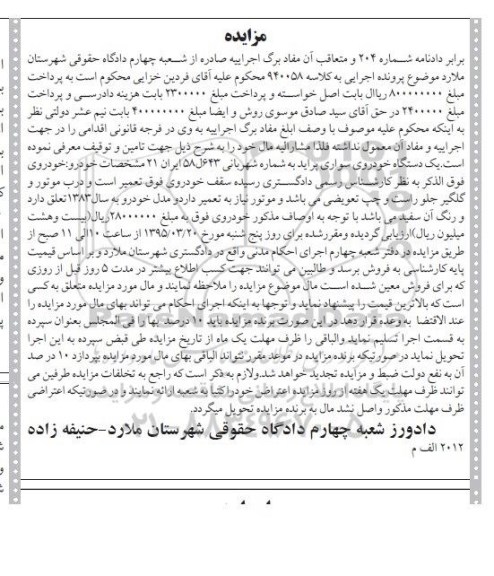 مزایده
برابر دادنامه شـــماره ۲۰۴ و متعاقب آن مفاد برگ اجراییه صادره از شـــعبه چهارم دادگاه حقوقی شهرستان
ملارد موضوع پرونده اجرایی به کلاسه ۹۴۰۰۵۸ محکوم علیه آقای فردین خزایی محکوم است به پرداخت
مبلغ ۸۰۰۰۰۰۰۰ ریاال بابت اصل خواســـته و پرداخت مبلغ ۲۳۰۰۰۰۰ بابت هزینه دادرســـی و پرداخت
مبلغ ۲۴۰۰۰۰۰ در حق آقای سید صادق موسوی روش و ایضا مبلغ ۴۰۰۰۰۰۰۰ بابت نیم عشر دولتی نظر
به اینکه محکوم علیه موصوف با وصف ابلغ مفاد برگ اجراییه به وی در فرجه قانونی اقدامی را در جهت
اجراییه و مفاد آن معمول نداشته فلذا مشارالیه مال خود را به شرح ذیل جهت تامین و توقیف معرفی نموده
است.یک دستگاه خودروی سواری پراید به شماره شهربانی ۶۴۳ل۵۸ ایران ۲۱ مشخصات خودرو:خودروی
فوق الذکر به نظر کارشـــناس رسمی دادگستـــری رسیده سقف خودروی فوق تعمیر است و درب موتور و
گلگیر جلو راست و چپ تعویضی می باشد و موتور نیاز به تعمیر داردو مدل خودرو به سال۱۳۸۳تعلق دارد
و رنگ آن سفید می باشد با توجه به اوصاف مذکور خودروی فوق به مبلغ ۲۸۰۰۰۰۰۰ریال(بیست وهشت
میلیون ریال)ارزیابی گردیده ومقررشده برای روز پنج شنبه مورخ ۱۳۹۵/۰۳/۲۰ از ساعت ۱۰الی ۱۱ صبح از
طریق مزایده در دفتر شعبه چهارم اجرای احکام مدنی واقع در دادگستری شهرستان ملارد و بر اساس قیمیت
پایه کارشناسی به فروش برسد و طالبین می توانند جهت کسب اطلاع بیشتر در مدت ۵ روز قبل از روزی
که برای فروش معین شده اســـت مال موضوع مزایده را ملاحظه نمایند و مال مورد مزایده متعلق به کسی
است که بالاترین قیمت را پیشنهاد نماید و توجها به اینکه اجرای احکام می تواند بهای مال مورد مزایده را
عند الاقتضا به وعده قرار دهد در این صورت برنده مزایده باید ۱۰ درصد بها را فی المجلس بعنوان سپرده
به قسمت اجرا تسلیم نماید والباقی را ظرف مهلت یک ماه از تاریخ مزایده طی قبض سپرده به این اجرا
تحویل نماید در صورتیکه برنده مزایده در موعد مقرر نتواند الباقی بهای مال مورد مزایده بپردازد ۱۰ در صد
آن به نفع دولت ضبط و مزایده تجدید خواهد شد.ولازم به ذکر است که راجع به تخلفات مزایده طرفین می
توانند ظرف مهلت یک هفته از روز مزایده اعتراض خود راکتبا به شعبه ارائه نمایند و درصورتیکه اعتراضی
ظرف مهلت مذکور واصل نشد مال به برنده مزایده تحویل میگردد.
دادورز شعبه چهارم دادگاه حقوقی شهرستان ملارد-حنیفه زاده
۲۰۱۲ الف م